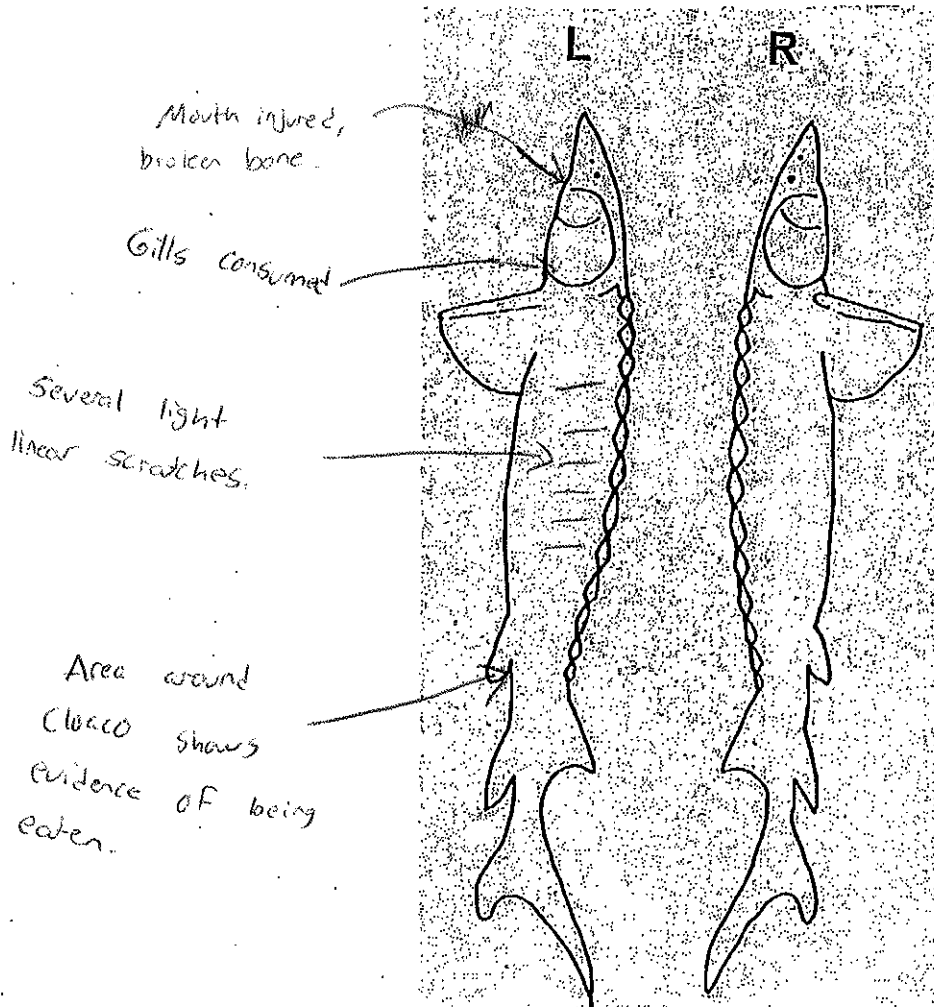 L
R
Mouth injured,
broken bone.
Gills consumed
Several light
linear scratches.
Area around
Cloaco shows
evidence of being
eaten.